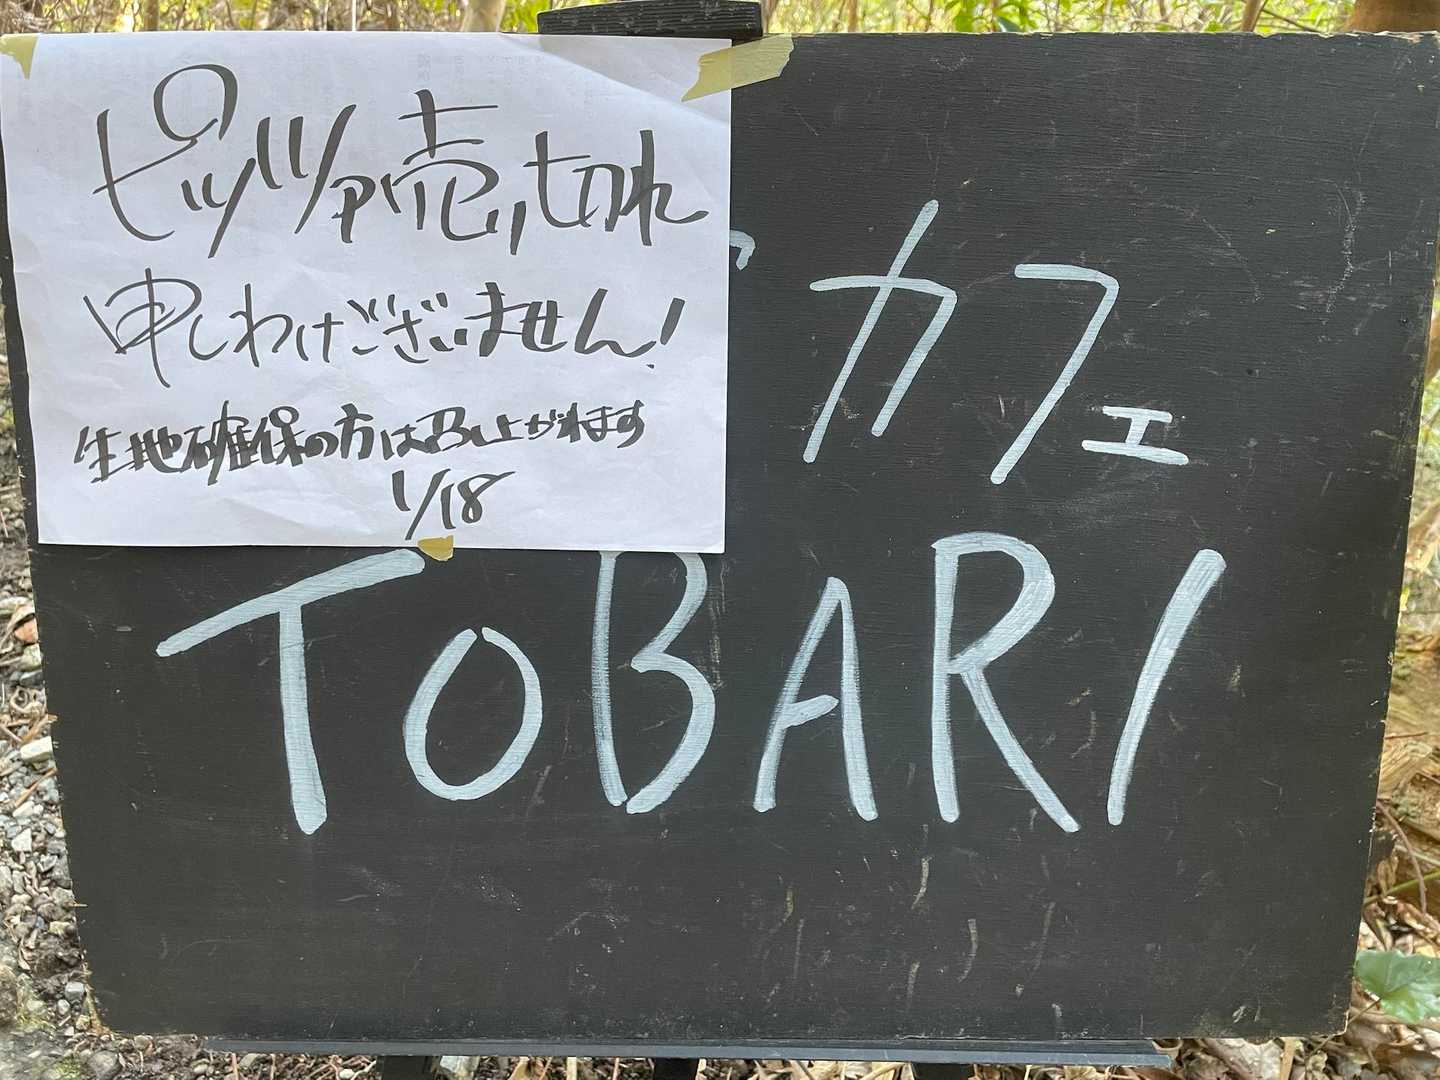 ピッツァ売り切れ
申しわけございません!
生地確保の方は召し上がれます
1/18
カフェ
TOBARI